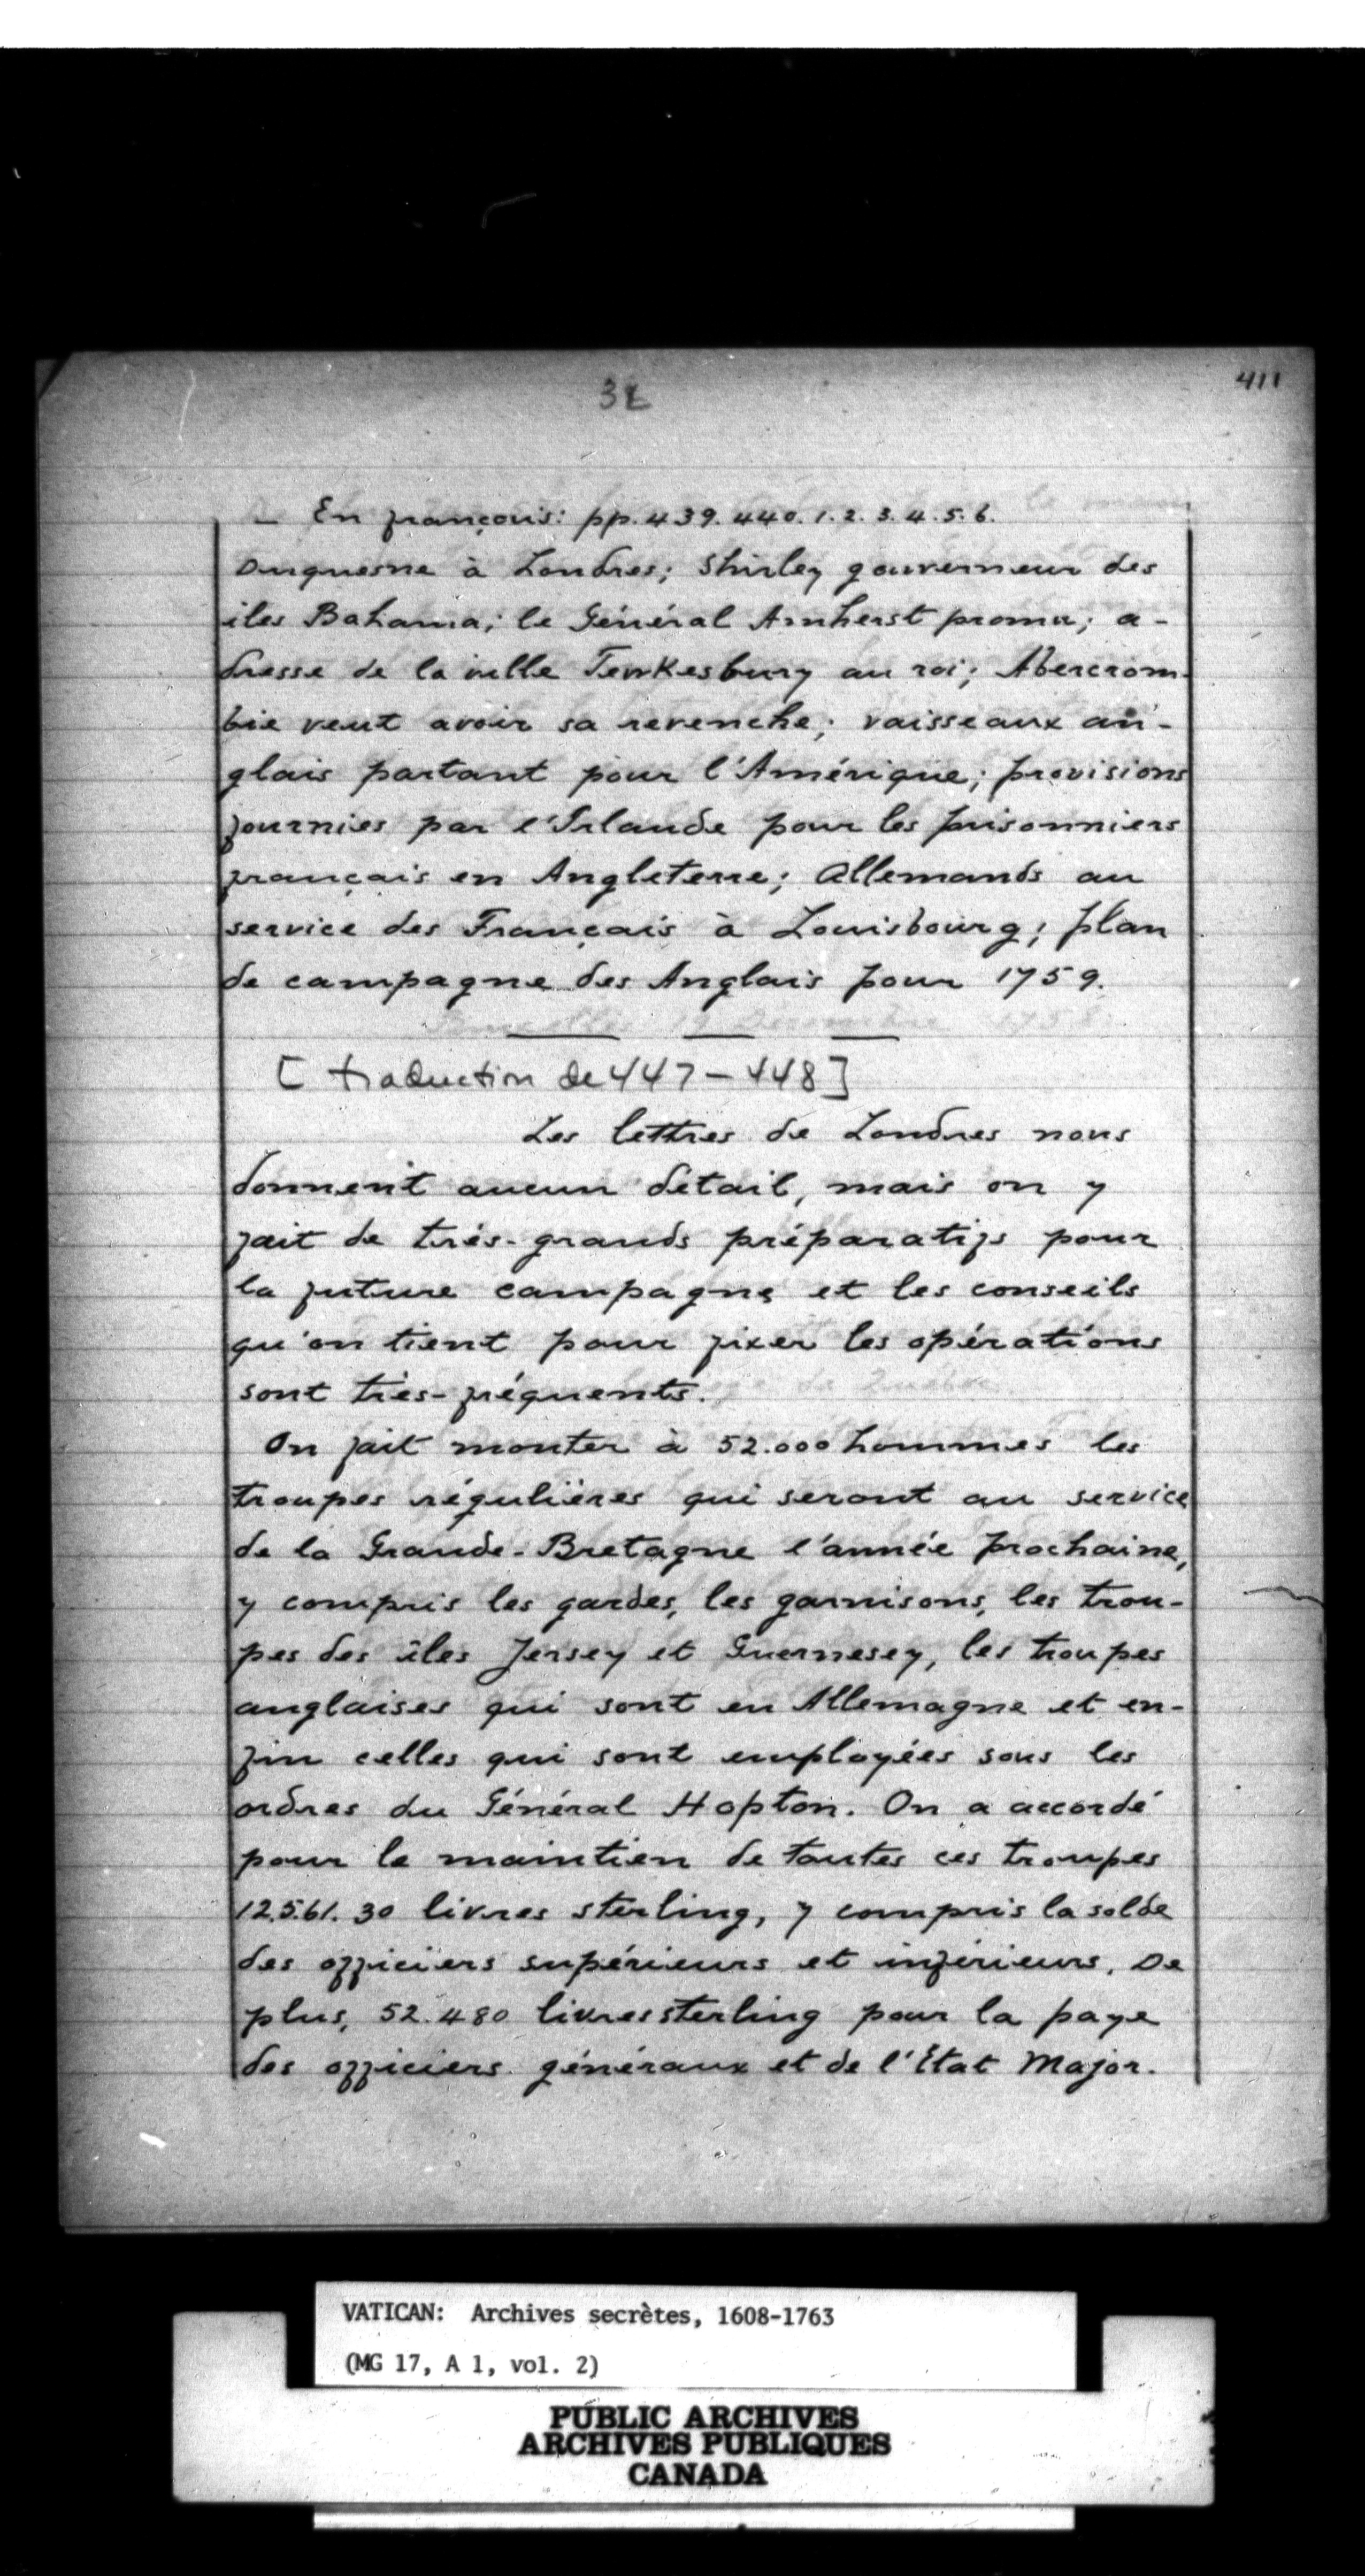 411
— En français: pp. 439. 440. 1. 2. 3. 4. 5. 6.
Duquesne à Londres; Shirley gouverneur des
îles Bahama; le Général Amherst promu; a-
dresse de la ville Tewkesbury au roi; Abercrom-
bie veut avoir sa revenche; vaisseaux an-
glais partant pour l'Amérique; provisions
fournies par l'Irlande pour les prisonniers
français en Angleterre; Allemands au
service des Français à Louisbourg; plan
de campagne des Anglais pour 1759.
[traduction de 447-448]
Les lettres de Londres nous
donnent aucun détail, mais on y
fait de très-grands préparatifs pour
la future campagne et les conseils
qu'on tient pour fixer les opérations
sont très-fréquents.
On fait monter à 52.000 hommes les
troupes régulières qui seront au service
de la Grande-Bretagne l'année prochaine,
y compris les gardes, les garnisons, les trou-
pes des îles Jersey et Guernesey, les troupes
anglaises qui sont en Allemagne et en-
fin celles qui sont employées sous les
ordres du Général Hopton. On a accordé
pour le maintien de toutes ces troupes
12.5.61. 30 livres sterling, y compris la solde
des officiers supérieurs et inférieurs. De
plus, 52.480 livres sterling pour la paye
des officiers généraux et de l'Etat Major.
VATICAN: Archives secrètes, 1608-1763
(MG 17, A 1, vol. 2)
PUBLIC ARCHIVES
ARCHIVES PUBLIQUES
CANADA